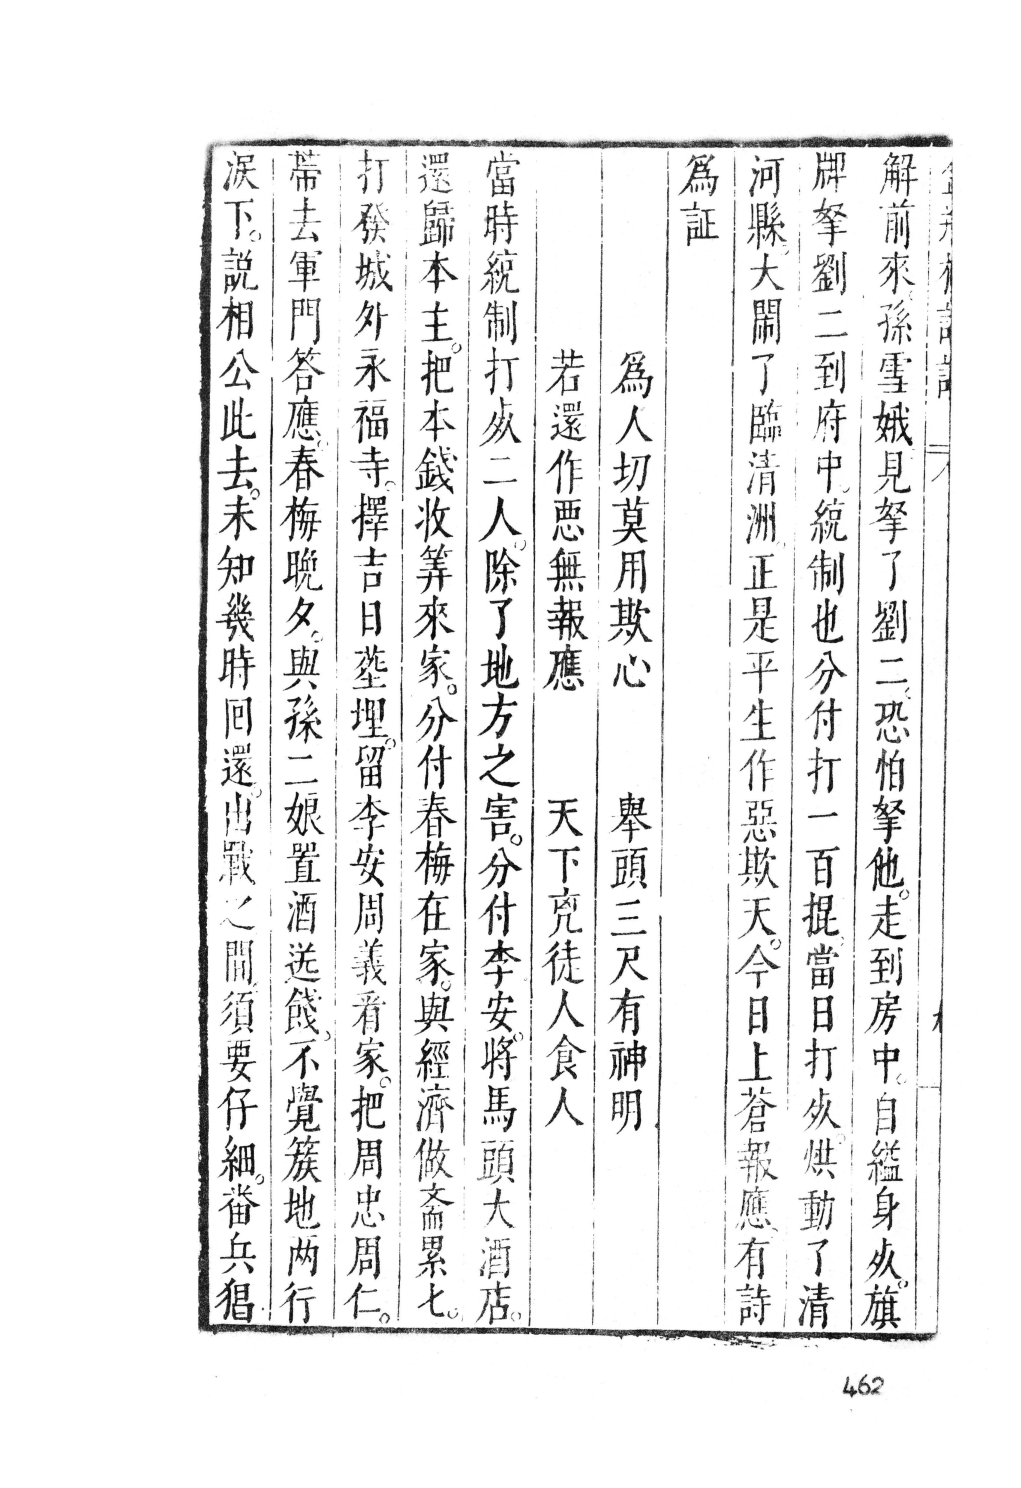 解前來。孫雪娥見拏了劉二。恐怕拏他。走到房中。自縊身死。旗
牌拏劉二到府中。統制也分付打一百棍。當日打死。烘動了清
河縣。大鬧了臨清洲。正是平生作惡欺天。今日上蒼報應。有詩
爲証
爲人切莫用欺心　舉頭三尺有神明
若還作悪無報應　天下兇徒人食人
當時統制打死二人。除了地方之害。分付李安。將馬頭大酒店。
還歸本主。把本錢收筭來家。分付春梅在家。與經濟做斋累七。
打發城外永福寺。擇吉日塟埋。留李安周義看家。把周忠周仁。
帶去軍門答應。春梅晚夕。與孫二娘置酒送餞。不覺簇地两行
淚下。説相公此去。未知幾時囘還。出戰之間。須要仔細。番兵猖
462